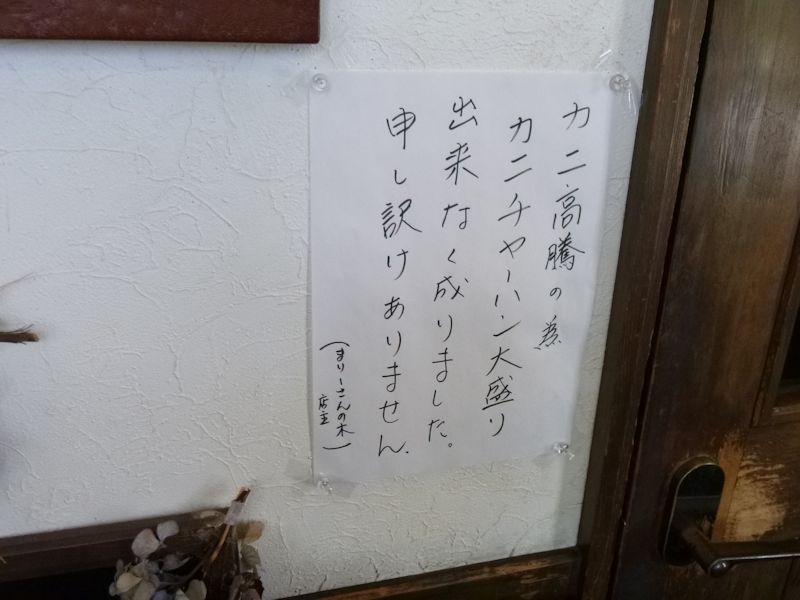 カニ高騰の為
カニチャーハン大盛り
出来なく成りました。
申し訳けありません.
(まりーさんの木
店主)